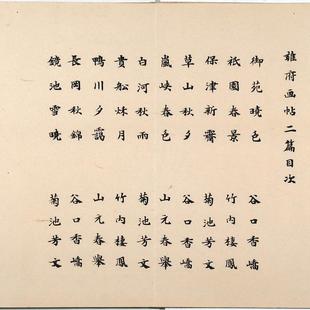 雍府画帖二篇目次
御苑曉色 谷口香嶠
祇園春景 竹内棲鳳
保津新霽 菊池芳文
草山秋夕 谷口香嶠
嵐峡春色 山元春擧
白河秋雨 菊池芳文
貴船秌月 竹内棲鳳
鴨川夕靄 山元春擧
長岡秋錦 谷口香嶠
鏡池雪曉 菊池芳文